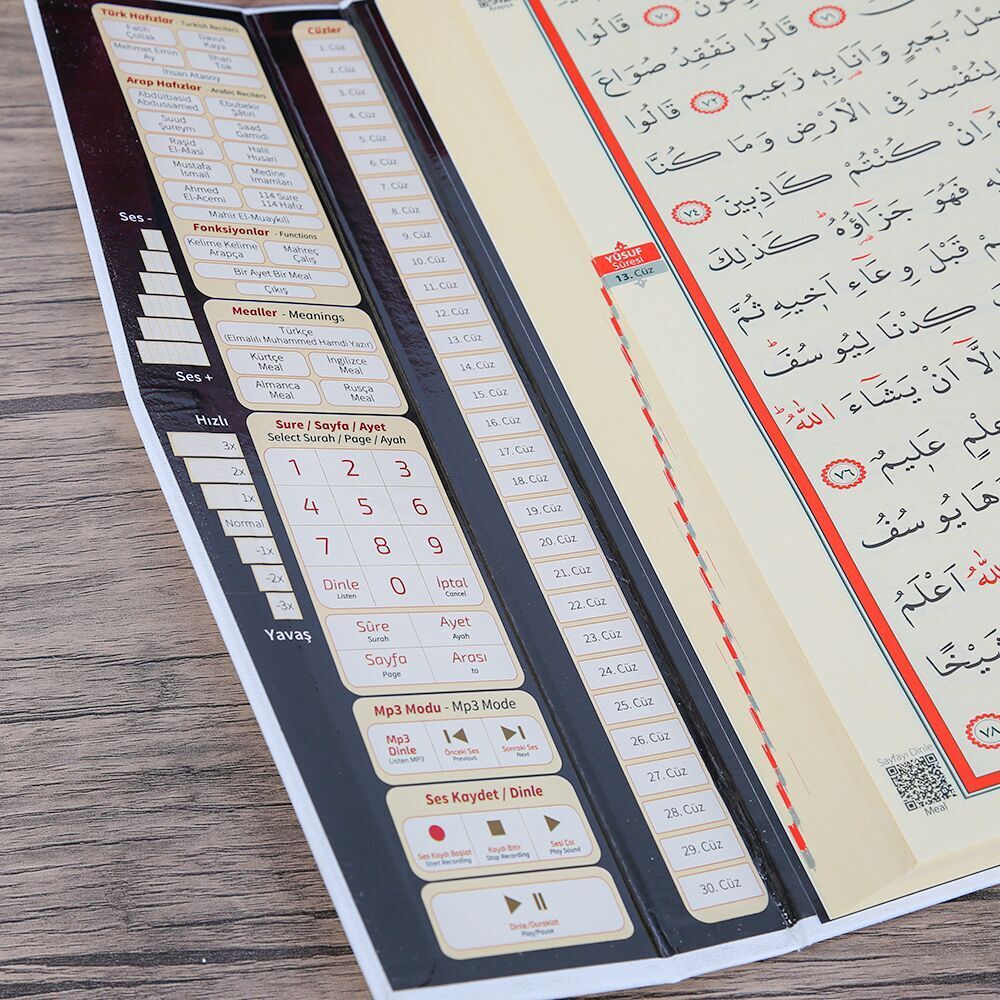 Türk Hafızlar - Turkish Reciters
Fatih Çollak
Davut Kaya
Mehmet Emin Ay
İlhan Tok
İhsan Atasoy
Arap Hafızlar - Arabic Reciters
Abdülbasid Abdussamed
Ebubekir Şâtıri
Suud Şureym
Saad Gamidi
Raşid El-Afasi
Halil Husari
Mustafa İsmail
Medine İmamları
Ahmed El-Acemi
114 Sure 114 Hafız
Mahir El-Muaykıli
Fonksiyonlar - Functions
Kelime Kelime Arapça
Mahreç Çalış
Bir Ayet Bir Meal
Çıkış
Mealler - Meanings
Türkçe
(Elmalılı Muhammed Hamdi Yazır)
Kürtçe Meal
İngilizce Meal
Almanca Meal
Rusça Meal
Sure / Sayfa / Ayet
Select Surah / Page / Ayah
1 2 3
4 5 6
7 8 9
Dinle 0 İptal
Listen Cancel
Sûre Ayet
Surah Ayah
Sayfa Arası
Page to
Mp3 Modu - Mp3 Mode
Mp3 Dinle
Listen MP3
Önceki Ses
Previous
Sonraki Ses
Next
Ses Kaydet / Dinle
Ses Kaydı Başlat
Start Recording
Kaydı Bitir
Stop Recording
Sesi Çal
Play Sound
Dinle/Duraklat
Play/Pause
Ses -
Ses +
Hızlı
3x
2x
1x
Normal
-1x
-2x
-3x
Yavaş
Cüzler
1. Cüz
2. Cüz
3. Cüz
4. Cüz
5. Cüz
6. Cüz
7. Cüz
8. Cüz
9. Cüz
10. Cüz
11. Cüz
12. Cüz
13. Cüz
14. Cüz
15. Cüz
16. Cüz
17. Cüz
18. Cüz
19. Cüz
20. Cüz
21. Cüz
22. Cüz
23. Cüz
24. Cüz
25. Cüz
26. Cüz
27. Cüz
28. Cüz
29. Cüz
30. Cüz
YÛSUF
Sûresi
13. Cüz
٧٠ قَالُوا
٧١ قَالُوا نَفْقِدُ صُوَاعَ
بَعٖيرٍ وَاَنَا بِهٖ زَعٖيمٌ ٧٢ قَالُوا
لِنُفْسِدَ فِي الْاَرْضِ وَمَا كُنَّا
كُنْتُمْ كَاذِبٖينَ ٧٤
فَهُوَ جَزَٓاؤُ۬هُ كَذٰلِكَ
قَبْلَ وِعَٓاءِ اَخٖيهِ ثُمَّ
كِدْنَا لِيُوسُفَ
اِلَّٓا اَنْ يَشَٓاءَ اللّٰهُ
عِلْمٍ عَلٖيمٌ ٧٦
يُوسُفُ
اللّٰهُ اَعْلَمُ
شَيْخًا
٧٨
Sayfayı Dinle
Meal